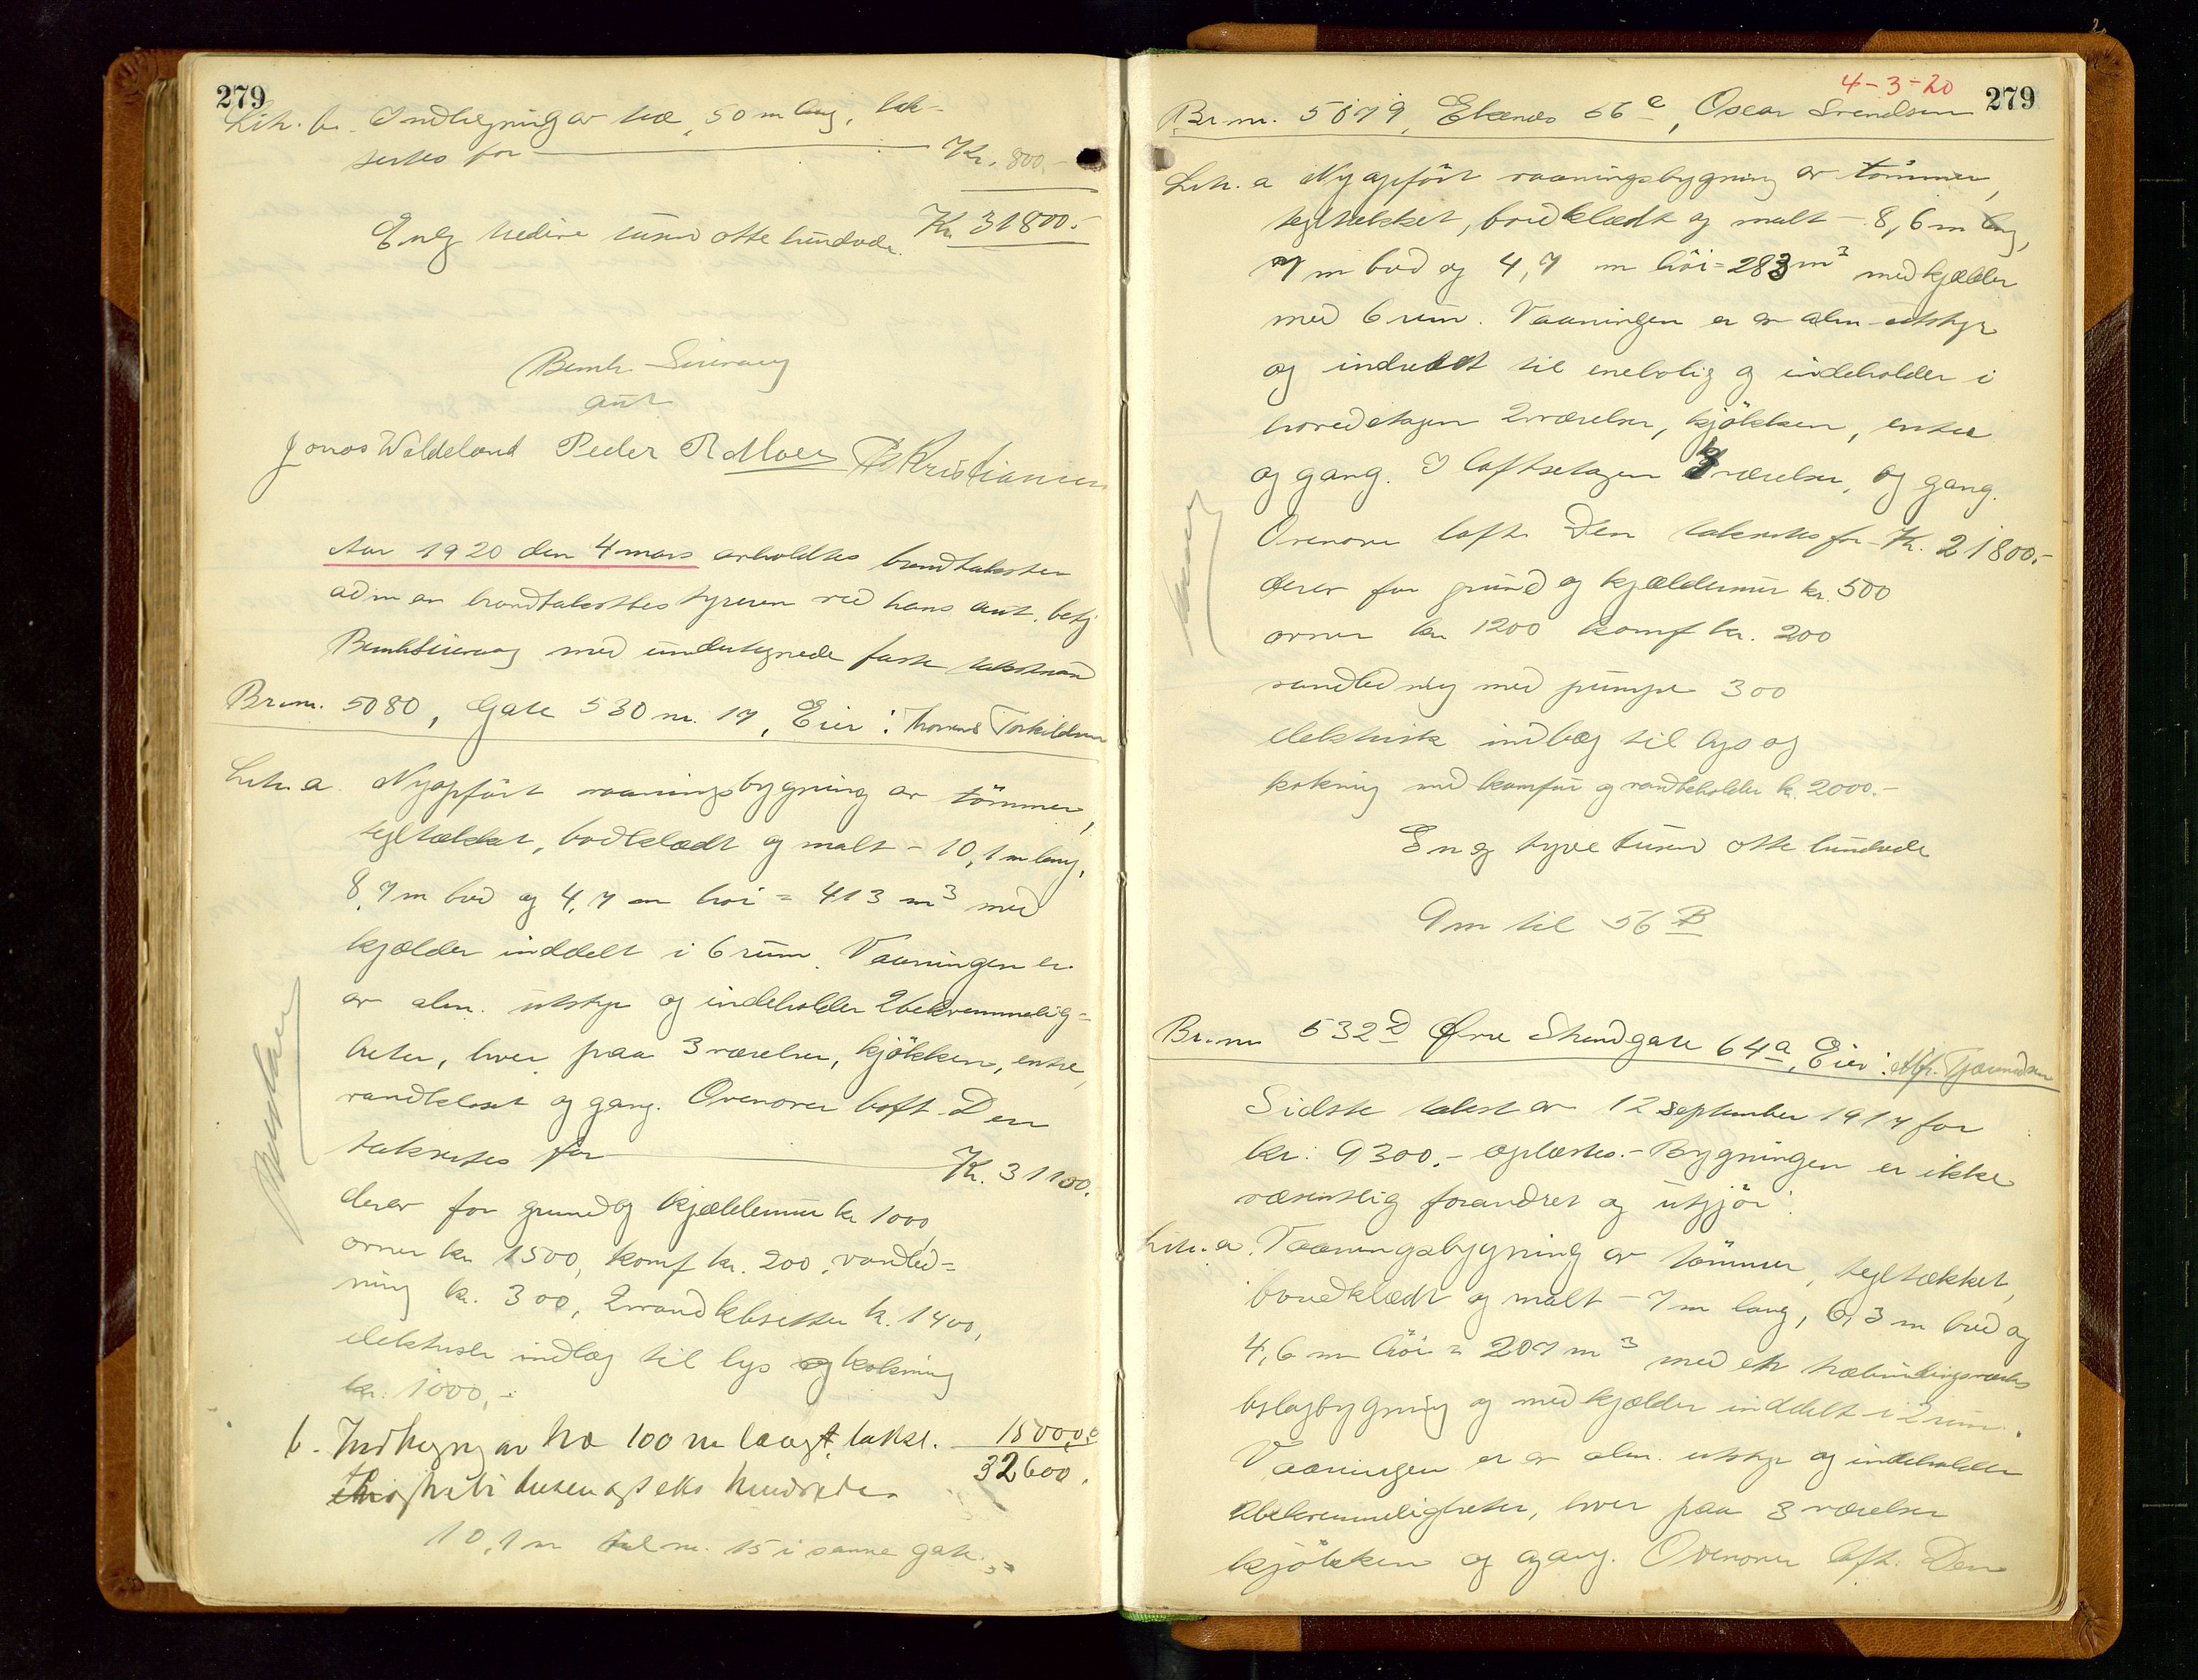 279
Lit. b. Indhegning av træ, 50 m lang, tak-
sertes for Kr. 800.-
Kr. 31800.-
En og tredive tusen otte hundrede.
Bernh. Sieraag
aut
Jonas Waldeland Peder R Moer Kristiansen
Aar 1920 den 4 mars avholdtes brandtakster
adm av brandtakstbestyreren ved hans aut. betj
Bernh Sieraag med undertegnede faste takstmænd
Br.nr. 5080, Gate 530 nr. 17, Eier: Thomas Torkildsen
Litr. a. Nyopført vaaningsbygning av tømmer,
tegltækket, bordklædt og malt - 10,1 m lang,
8,7 m bred og 4,7 m høi = 413 m³ med
kjælder inddelt i 6 rum. Vaaningen er
av alm. utstyr og indeholder 2 bekvemmelig-
heter, hver paa 3 værelser, kjøkken, entre,
vandkloset og gang. Ovenover loft. Den
takseres for Kr. 31100.
derav for grund og kjældermur kr 1000,
ovner kr 1500, komf kr. 200, vandled-
ning kr. 300, 2 vandklosetter kr. 1400,
elektrisk indlæg til lys og kokning
kr. 1000,-
b. Indhegning av træ 100 m langt takst. 1500,00
32600.
to og tretti tusen og seks hundrede
10,1 m til nr. 15 i samme gate.
4-3-20
279
Br.nr. 5079, Ekenæs 56 c, Oscar Svendsen
Litr. a Nyopført vaaningsbygning av tømmer,
tegltækket, bordklædt og malt - 8,6 m lang,
7 m bred og 4,7 m høi = 283 m³ med kjælder
med 6 rum. Vaaningen er av alm. utstyr
og indredet til enebolig og indeholder i
hovedetagen 2 værelser, kjøkken, entre
og gang. I loftsetagen 3 værelser, og gang.
Ovenover loft. Den takseres for Kr. 21800.-
derav for grund og kjældermur kr. 500
ovner kr 1200 komf kr. 200
vandledning med pumpe 300
elektrisk indlæg til lys og
kokning med komfur og vandbeholder kr. 2000.-
En og tyve tusen otte hundrede
9 m til 56 B
Br.nr 532 D Øvre Strandgate 64 a, Eier: Alfr. Gjermundsen
Sidste takst av 12 september 1914 for
kr. 9300.- oplæstes.- Bygningen er ikke
væsentlig forandret og utgjør:
Litr. a. Vaaningsbygning av tømmer, tegltækket,
bordklædt og malt - 7 m lang, 6,3 m bred og
4,6 m høi = 207 m³ med et træbindingsverks
bislagbygning og med kjælder inddelt i 2 rum.
Vaaningen er av alm. utstyr og indeholder
2 bekvemmeligheter, hver paa 3 værelser
kjøkken og gang. Ovenover loft. Den